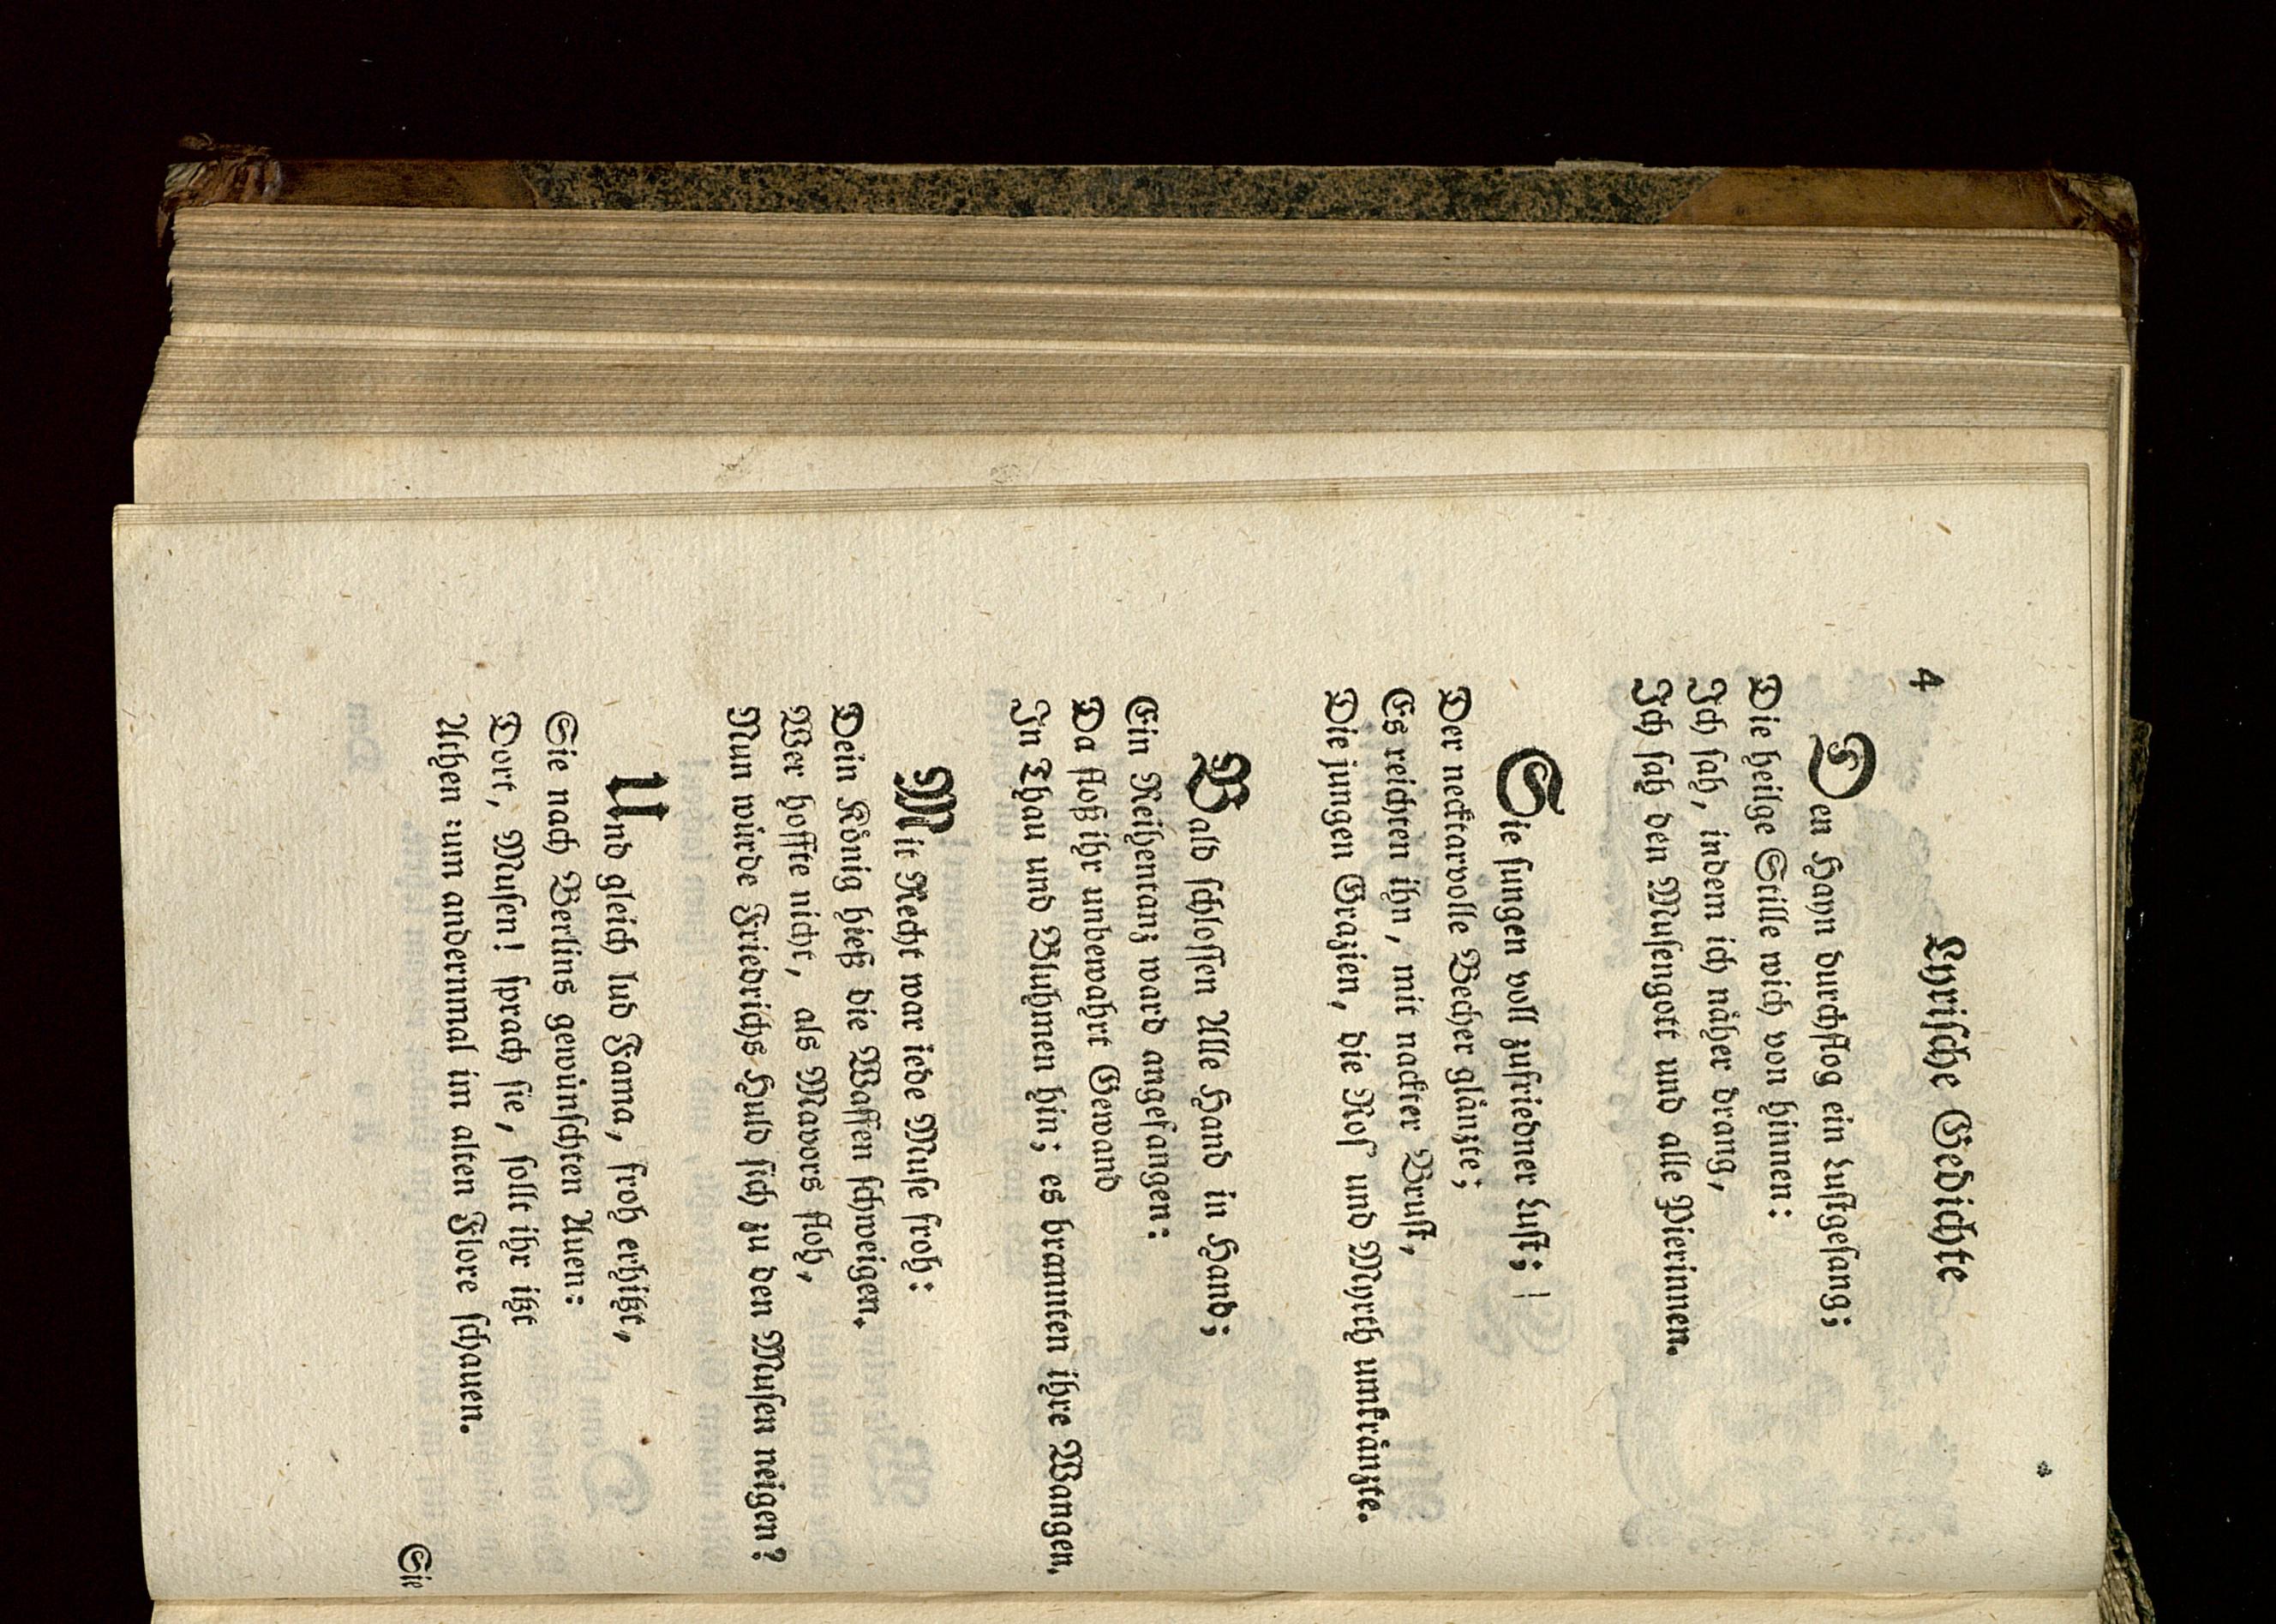 4
Lyrische Gedichte
Den Hayn durchflog ein Lustgesang;
Die heilge Stille wich von hinnen:
Ich sah, indem ich näher drang,
Ich sah den Musengott und alle Pierinnen.
Sie sungen voll zufriedner Lust;
Der necktarvolle Becher glänzte;
Es reichten ihn, mit nackter Brust,
Die jungen Grazien, die Ros' und Myrth umkränzte.
Bald schlossen Alle Hand in Hand;
Ein Reihentanz ward angefangen:
Da floß ihr unbewahrt Gewand
In Thau und Bluhmen hin; es brannten ihre Wangen.
Mit Recht war iede Muse froh:
Dein König hieß die Waffen schweigen.
Wer hoffte nicht, als Mavors floh,
Nun würde Friedrichs Huld sich zu den Musen neigen?
Und gleich lud Fama, froh erhitzt,
Sie nach Berlins gewünschten Auen:
Dort, Musen! sprach sie, sollt ihr itzt
Athen zum andernmal im alten Flore schauen.
Sie